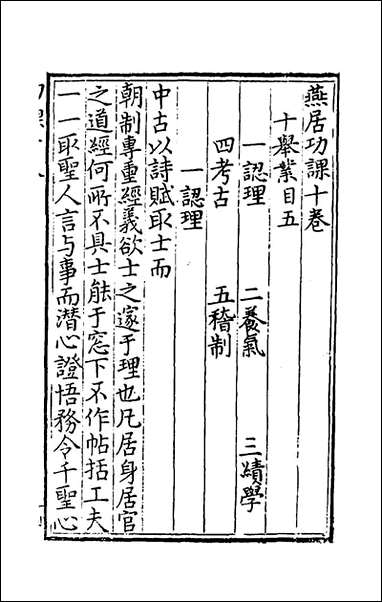 燕居功課十卷
十舉業目五
一認理　二養氣　三績學
四考古　五稽制
一認理
中古以詩賦取士而
朝制專重經義欲士之邃于理也凡居身居官
之道經何所不具士能于窓下不作帖括工夫
一一取聖人言与事而潜心證悟務令千聖心